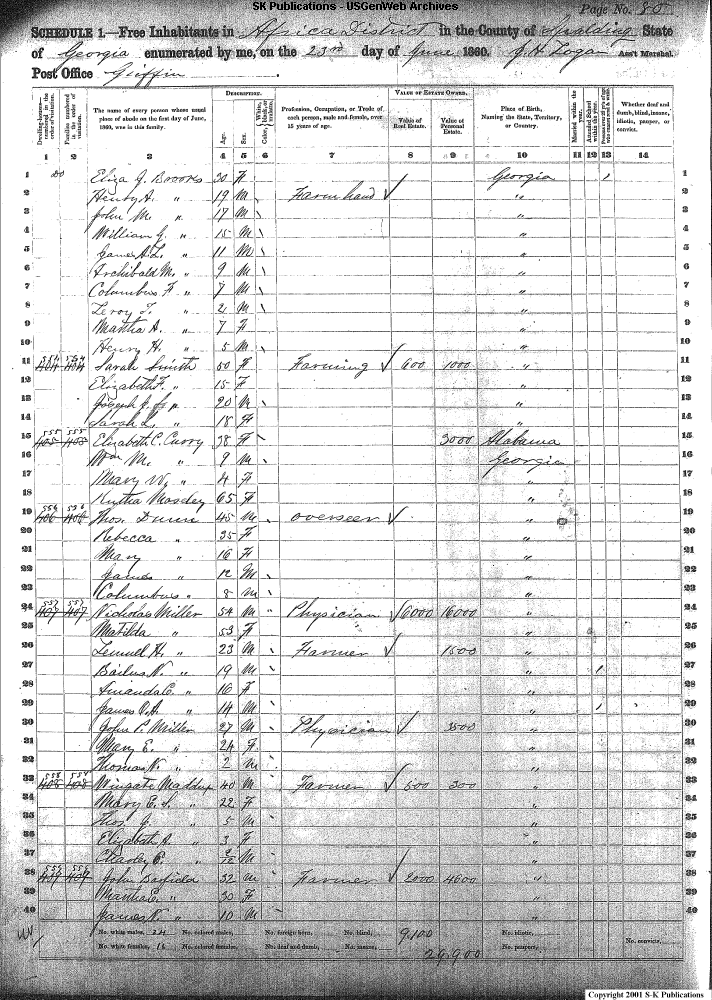 SK Publications - USGenWeb Archives
Page No. 80
SCHEDULE 1.—Free Inhabitants in Africa District in the County of Spalding State
of Georgia enumerated by me, on the 23rd day of June 1860. J. H. Logan Ass't Marshal.
Post Office Griffin
Dwelling-houses—numbered in the order of visitation.
Families numbered in the order of visitation.
The name of every person whose usual place of abode on the first day of June, 1860, was in this family.
DESCRIPTION.
Age.
Sex.
Color, White, black, or mulatto.
Profession, Occupation, or Trade of each person, male and female, over 15 years of age.
VALUE OF ESTATE OWNED.
Value of Real Estate.
Value of Personal Estate.
Place of Birth, Naming the State, Territory, or Country.
Married within the year.
Attended School within the year.
Whether deaf and dumb, blind, insane, idiotic, pauper, or convict.
1 2 3 4 5 6 7 8 9 10 11 12 13 14
1 Do Eliza J. Brooks 30 F Georgia 1
2 Henry A. " 19 M Farm hand " 2
3 John M. " 17 M " 3
4 William G. " 15 M " 4
5 James A. L. " 11 M " 5
6 Archibald M. " 9 M " 6
7 Columbus F " 7 M " 7
8 Leroy T. " 2 M " 8
9 Martha A. " 7 F " 9
10 Henry H. " 5 M " 10
11 404 404 Sarah Smith 50 F Farming 600 1000 " 11
12 Elizabeth F. " 15 F " 12
13 Joseph J. 20 M " 13
14 Sarah L. " 18 F " 14
15 555 555 405 405 Elizabeth C. Curry 38 F 3000 Alabama 15
16 Wm M. " 9 M Georgia 16
17 Mary W. " 4 F " 17
18 Moseley 65 F " 18
19 556 556 406 406 Thos. Dunn 45 M overseer " 19
20 Rebecca " 35 F " 20
21 Mary " 16 F " 21
22 James " 12 M " 22
23 Columbus " 8 M " 23
24 557 557 407 407 Nicholas Miller 54 M Physician 6000 16000 " 24
25 Matilda " 53 F " 25
26 Lemuel H. " 23 M Farmer 1500 " 26
27 N. " 19 M " 27
28 Amanda C. " 16 F " 28
29 James " 14 M " 29
30 John P. Miller 27 M Physician 3500 " 30
31 Mary E. " 24 F " 31
32 Thomas N. " 2 M " 32
33 558 558 408 408 Wingate Maddux 40 M Farmer 500 300 " 33
34 Mary E. S. " 22 F " 34
35 Thos. J. " 5 M " 35
36 Elizabeth A. " 3 F " 36
37 Charley E. " M " 37
38 John Barfield 32 M Farmer 2000 4600 " 38
39 Martha E. " 30 F " 39
40 James N. " 10 M " 40
No. white males, 24 No. colored males, No. foreign born, No. blind, 9,100 No. idiotic,
No. white females, 16 No. colored females, No. deaf and dumb, No. insane, 29,900 No. paupers, No. convicts,
Copyright 2001 S-K Publications